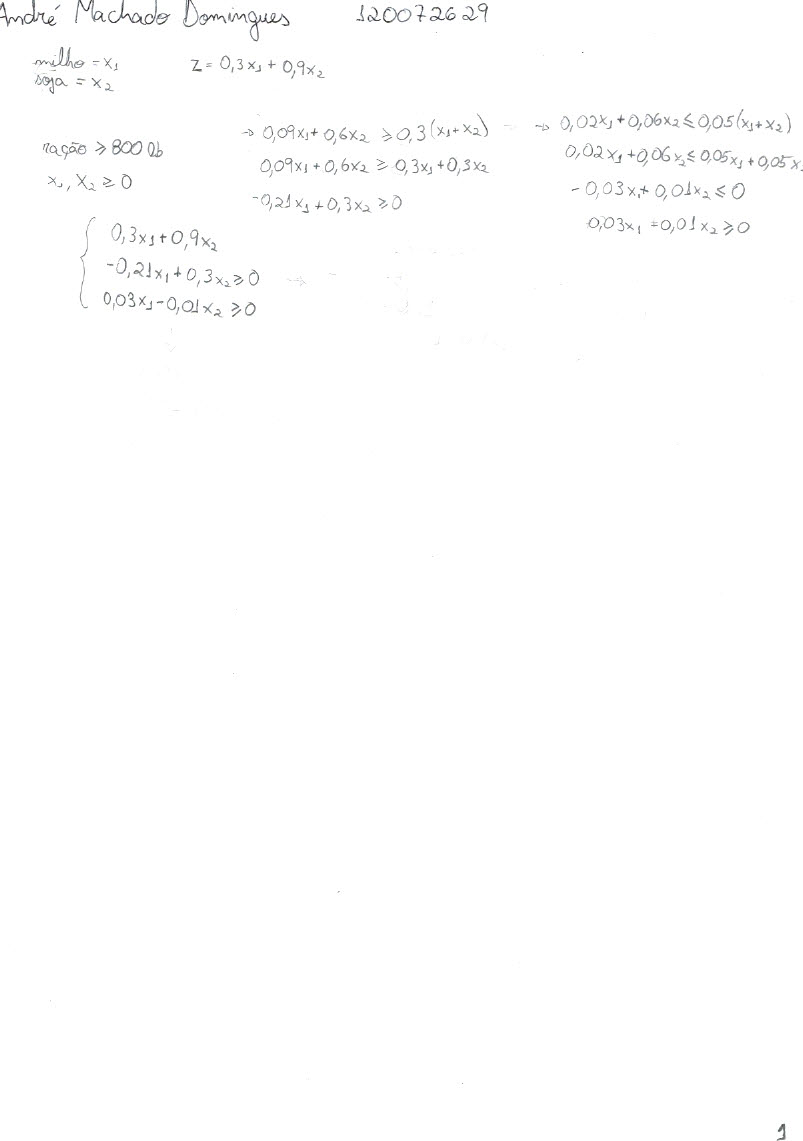 André Machado Domingues 120072629
milho = x₁
soja = x₂
Z = 0,3x₁ + 0,9x₂
ração ≥ 800 lb
x₁, x₂ ≥ 0
→ 0,09x₁ + 0,6x₂ ≥ 0,3(x₁+x₂)
0,09x₁ + 0,6x₂ ≥ 0,3x₁ + 0,3x₂
-0,21x₁ + 0,3x₂ ≥ 0
→ 0,02x₁ + 0,06x₂ ≤ 0,05(x₁+x₂)
0,02x₁ + 0,06x₂ ≤ 0,05x₁ + 0,05x
-0,03x₁ + 0,01x₂ ≤ 0
0,03x₁ - 0,01x₂ ≥ 0
0,3x₁ + 0,9x₂
-0,21x₁ + 0,3x₂ ≥ 0
0,03x₁ - 0,01x₂ ≥ 0
1